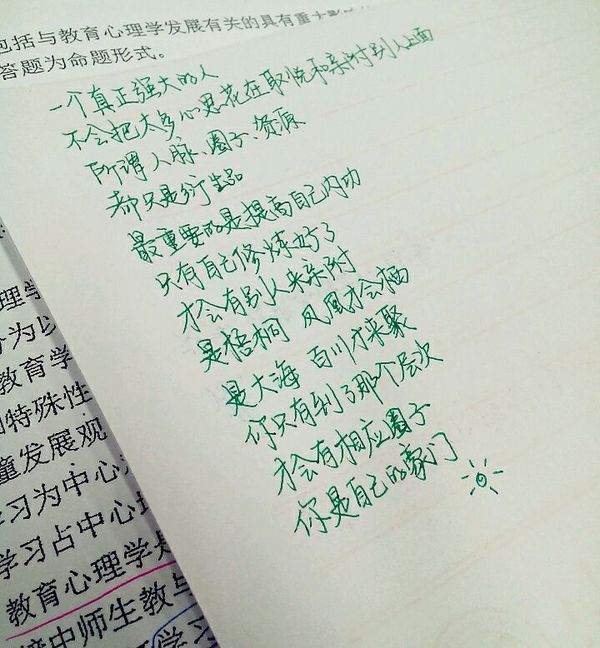 包括与教育心理学发展有关的具有重
答题为命题形式。
一个真正强大的人
不会把太多心思花在取悦和亲附别人上面
所谓人脉、圈子、资源
都只是衍生品
最重要的是提高自己内功
只有自己修炼好了
才会有别人来亲附
是梧桐 凤凰才会栖
是大海 百川才来聚
你只有到了那个层次
才会有相应圈子
你是自己的豪门
心理学
分为以
教育学
特殊性
童发展观
学习为中心
学习占中心
教育心理学是
中师生教与
学习